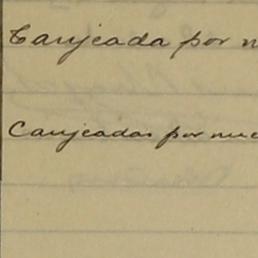 Canjeada por n
Canjeadas por nue